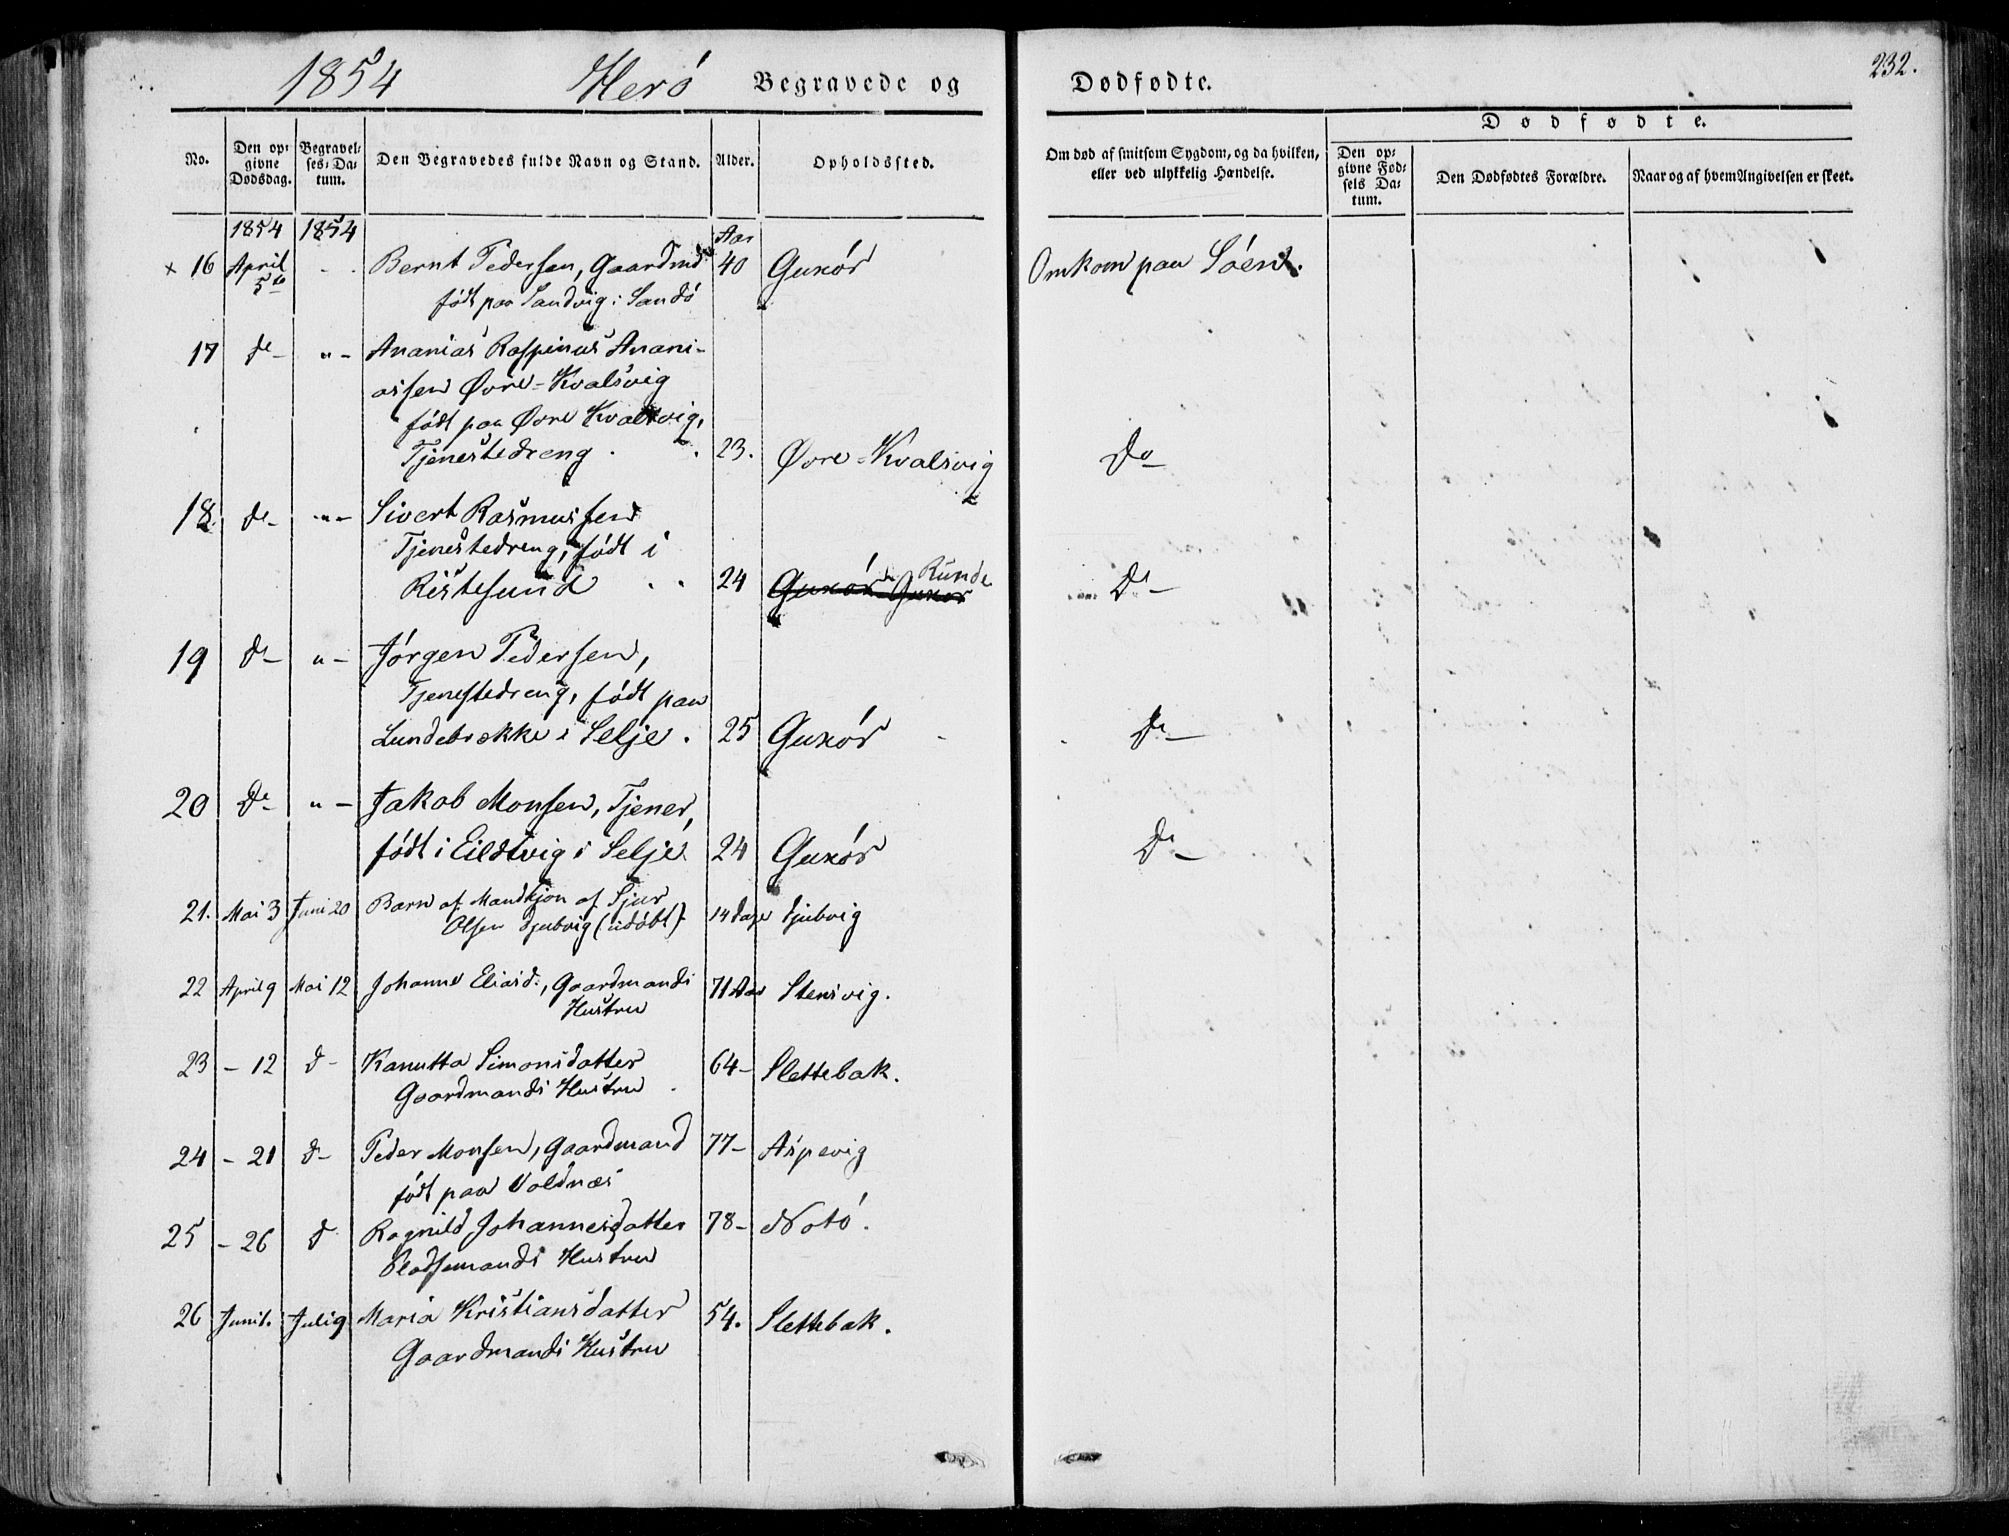 1854 Herö Begravede og Dødfødte. 232.
No. Den opgivne Dødsdag. Begravelses-Datum. Den Begravedes fulde Navn og Stand. Alder. Opholdssted. Om død af smitsom Sygdom, og da hvilken, eller ved ulykkelig Hændelse. Dødfødte.
Den opgivne Fødsels Datum. Den Dødfødtes Forældre. Naar og af hvem Angivelsen er skeet.
1854 1854 Aar
× 16 April 5te - - Bernt Pedersen, Gaardmd 40 Guxór Omkom paa Søen.
født paa Sandvig i Sandö
17 do - " - Ananias Raspinus Anani-
assen Øvre-Kvalsvig
født paa Øvre Kvalsvig,
Tjenestedreng . . 23. Øvre-Kvalsvig Do
18 do - " - Sivert Rasmussen
Tjenestedreng, født i
Ristesund . . 24 Guxór Guxor Runde Do -
19 do - " - Jórgen Pedersen,
Tjenestedreng, født paa
Lundebrække i Selje . 25 Guxór do -
20 Do - " - Jakob Monsen, Tjener,
født i Eildtvig i Selje 24 Guxór Do -
21. Mai 3 Juni 20 Barn af Mandkjøn af Sjur 14 Dage Djubvig
Olsen Djubvig (udøbt).
22 April 9 Mai 12 Johanne Eliasd., Gaardmands 71 Aar Stensvig.
Hustru
23 - 12 d - Kanutta Simonsdatter 64 - Slettebak.
Gaardmands Hustru .
24 - 21 d - Peder Monsen, Gaardmand 77 - Aspevig
født paa Voldnæs
25 - 26 d Ragnild Johannesdatter 78 - Notö.
Pladsemands Hustru
26 Juni 1. Juli 9 Maria Kristiansdatter 54. Slettebak.
Gaardmands Hustru